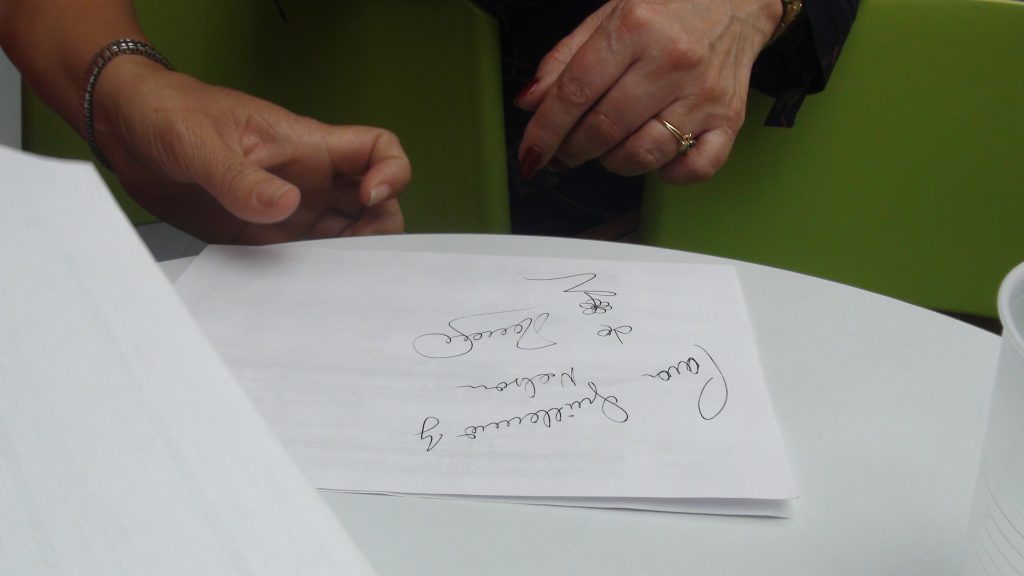 Para Guillermo y
Nelson
de